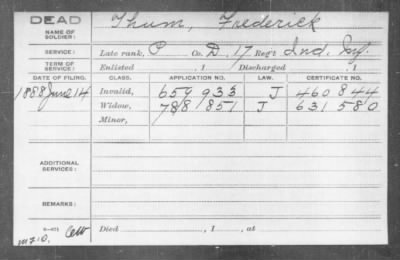 DEAD
NAME OF SOLDIER: Thum, Frederick
SERVICE: Late rank, P Co. D, 17 Reg't Ind. Inf.
TERM OF SERVICE: Enlisted , 1 Discharged , 1
DATE OF FILING. CLASS. APPLICATION NO. LAW. CERTIFICATE NO.
1888 June 14 Invalid, 659 933 J 460 844
Widow, 788 851 J 631 580
Minor,
ADDITIONAL SERVICES:
REMARKS:
Died , 1 , at